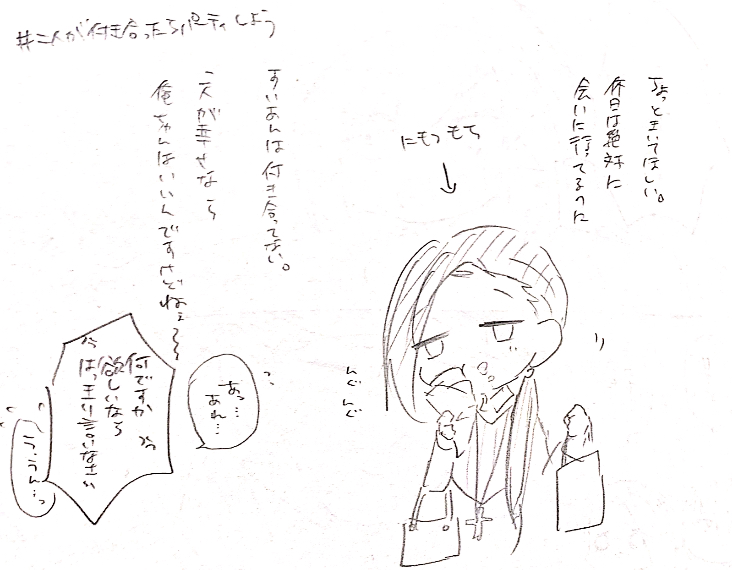 #二人が付き合ったらパーティしよう
ちょっときいてほしい。
休日は絶対に
会いに行ってるのに
にもつもち
すいあんは付き合ってない。
二人が幸せなら
俺ちゃんはいいんですけどねぇ〜〜
んぐんぐ
あっ…
あれ…
何ですか
欲しいなら
はっきり言いなさい
う、うん…っ